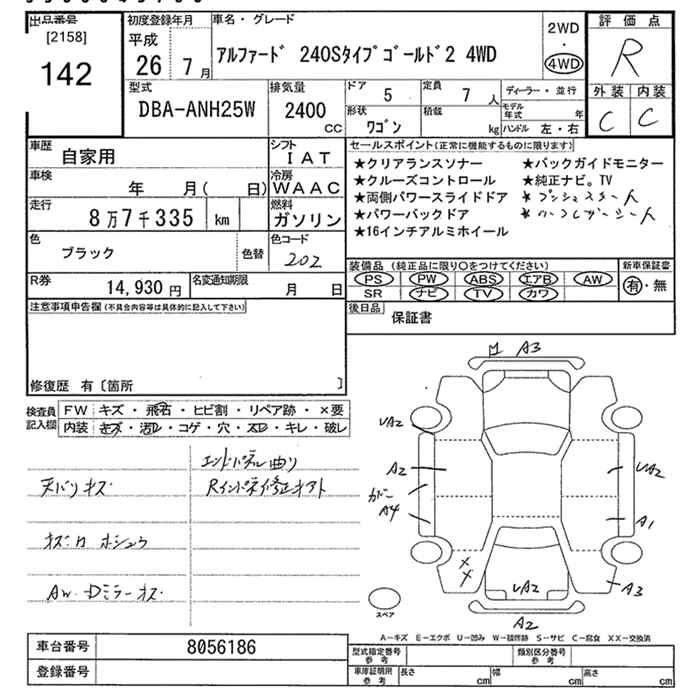 出品番号
[2158]
142
初度登録年月
平成
26 7月
車名・グレード
アルファード 240Sタイプゴールド2 4WD
2WD
・
4WD
評価点
R
外装 内装
C C
型式
DBA-ANH25W
排気量
2400
CC
ドア
5
定員
7 人
形状
ワゴン
積載
kg
ディーラー・並行
モデル年式 年
ハンドル 左・右
車歴
自家用
シフト
IAT
車検
年 月( 日)
冷房
WAAC
走行
8万7千335 km
燃料
ガソリン
色
ブラック
色替
色コード
202
R券
14,930 円
名変通知期限
月 日
セールスポイント(正常に機能するものに限ります)
★クリアランスソナー
★クルーズコントロール
★両側パワースライドドア
★パワーバックドア
★16インチアルミホイール
★バックガイドモニター
★純正ナビ。TV
★プッシュスタート
★ハーフレザーシート
装備品(純正品に限り○をつけてください)
PS PW ABS エアB AW
SR ナビ TV カワ
新車保証書
有・無
後日品
保証書
注意事項申告欄(不具合内容等は具体的に記入して下さい)
修復歴 有〔箇所 〕
検査員記入欄
FW キズ・飛石・ヒビ割・リペア跡・×要
内装 キズ・汚レ・コゲ・穴・スレ・キレ・破レ
エンドパネル曲り
天バリキズ
Rインパネ修正キアト
AW・Dミラーキズ
A3
UA2
A2
UA2
A4
A1
A3
UA2
A2
スペア
A-キズ E-エクボ U-凹み W-補修跡 S-サビ C-腐食 XX-交換済
車台番号
8056186
登録番号
型式指定番号
参考
類別区分番号
参考
車庫証明用
参考
長さ cm
幅 cm
高さ cm